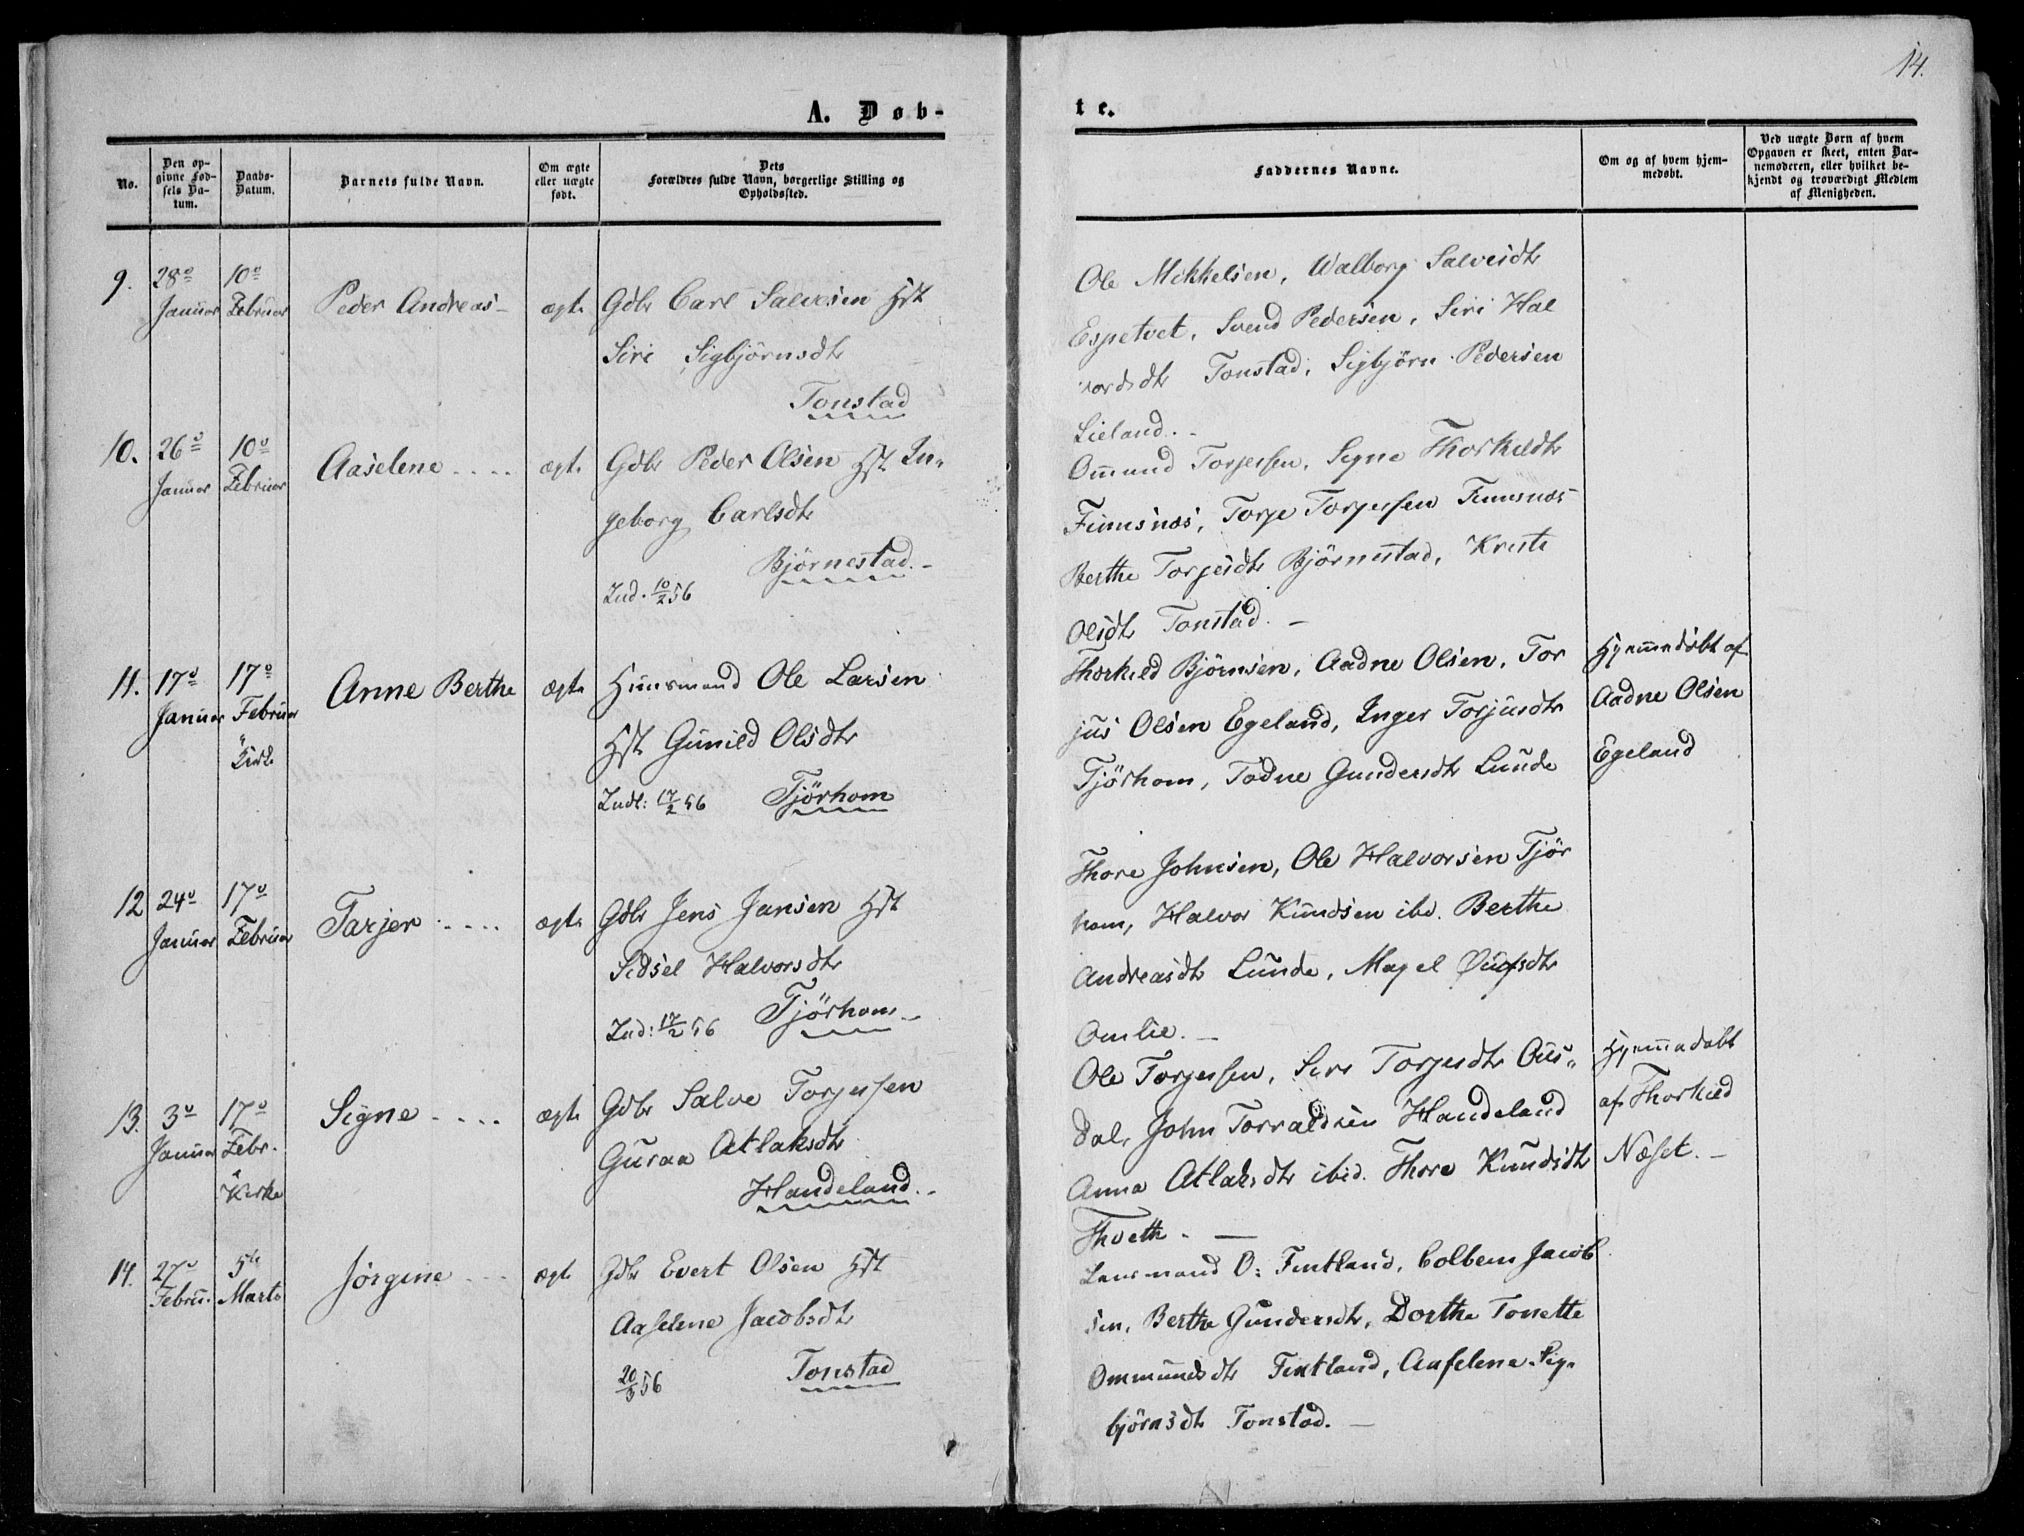 14.
A. Døb-
te.
No.
Den op-
givne Fød-
sels Da-
tum.
Daabs-
Datum.
Barnets fulde Navn.
Om ægte
eller uægte
født.
Dets
Forældres fulde Navn, borgerlige Stilling og
Opholdssted.
Faddernes Navne.
Om og af hvem hjem-
medøbt.
Ved uægte Børn af hvem
Opgaven er skeet, enten Bar-
nemoderen, eller hvilket be-
kjendt og troværdigt Medlem
af Menigheden.
9.
28º
Januar
10º
Februar
Peder Andreas -
ægte
Gdbr Carl Salvesen Hst
Siri Sigbjørnsdtr
Tonstad
Ole Mikkelsen, Walborg Salvesdtr
Espetvet, Svend Pedersen, Siri Hal
vordsdtr Tonstad, Sigbjörn Pedersen
Lieland. -
10.
26º
Januar
10º
Februar
Aaselene - - - -
ægte
Gdbr Peder Olsen Hst In-
geborg Carlsdtr
Bjørnestad. -
Ind. 10/2 56
Ommund Torjersen, Signe Thorkildtr
Finnsnæs, Torje Torjersen Finnsnæs
Berthe Torjesdtr Bjørnestad,
Olsdtr Tonstad. -
11.
17º
Januar
17º
Februar
i Kirke
Anne Berthe
ægte
Huusmand Ole Larsen
Hst Gunild Olsdtr
Indl: 17/2 56 Tjörhom
Thorkild Bjørnsen, Aadne Olsen, Tor
jus Olsen Egeland, Inger Torjusdtr
Tjörhom, Todne Gundersdtr Lunde
Hjemmedøbt af
Aadne Olsen
Egeland
12
24º
Januar
17º
Februar
Tarjer - - - -
ægte
Gdbr Jens Jansen Hst
Sidsel Halvorsdtr
Ind: 17/2 56 Tjörhom -
Thore Johnsen, Ole Halvorsen Tjör
hom, Halvor Knudsen ibd. Berthe
Andreasdtr Lunde, Magel
Omlie. -
13.
3º
Januar
17º
Febr.
i Kirke
Signe - - - -
ægte
Gdbr Salve Torjersen
Guraa Atlaksdtr
Handeland. -
Ole Torjersen, Siri Torjersdtr Ous-
dal, John Torvaldsen Handeland
Anna Atlaksdtr ibid. Thore Knudsdtr
Thveth. -
Hjemmedøbt
af Thorkild
Næset. -
14.
27º
Febru.
5te
Marts
Jørgine - - -
ægte
Gdbr Evert Olsen Hst
Aaselene Jacobsdtr
20/3 56 Tonstad
Lensmand O: Fintland, Colben Jacob
sen, Berthe Gundersdtr, Dorthe Tonette
Ommundsdtr Fintland, Aaselene Sig-
bjørnsdtr Tonstad. -